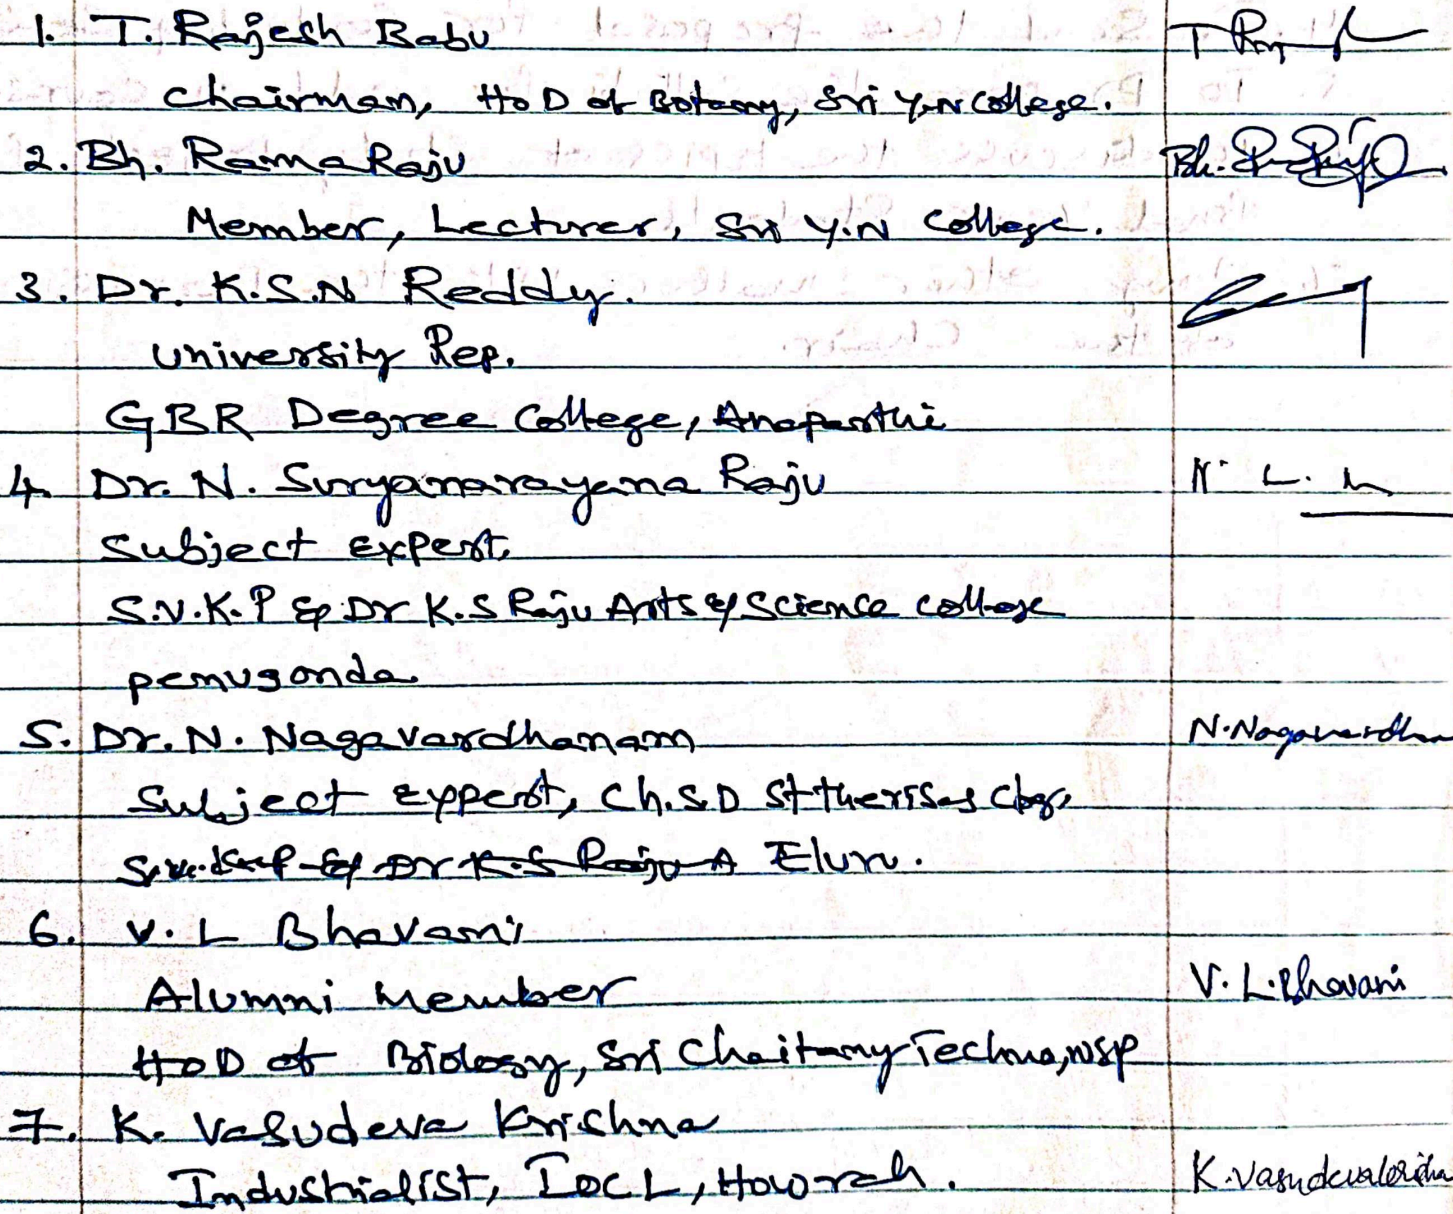 1. T. Rajesh Babu
Chairman, HoD of Botany, Sri Y.N College.
2. Bh. Rama Raju Bh.
Member, Lecturer, Sri Y.N College.
3. Dr. K.S.N Reddy.
University Rep.
GBR Degree College, Anaparthi
4. Dr. N. Suryanarayana Raju
Subject Expert,
S.V.K.P & Dr K.S Raju Arts & Science College
penugonda
5. Dr. N. Nagavardhanam N. Nagavardhan
Subject Expert, Ch.S.D St therisas Clg,
Eluru.
6. V. L Bhavani
Alumni Member V. L. Bhavani
HoD of Biology, Sri Chaitany Techno, NSP
7. K. Vasudeva Krishna
Industrialist, IOCL, Howrah. K. Vasudevakrishna